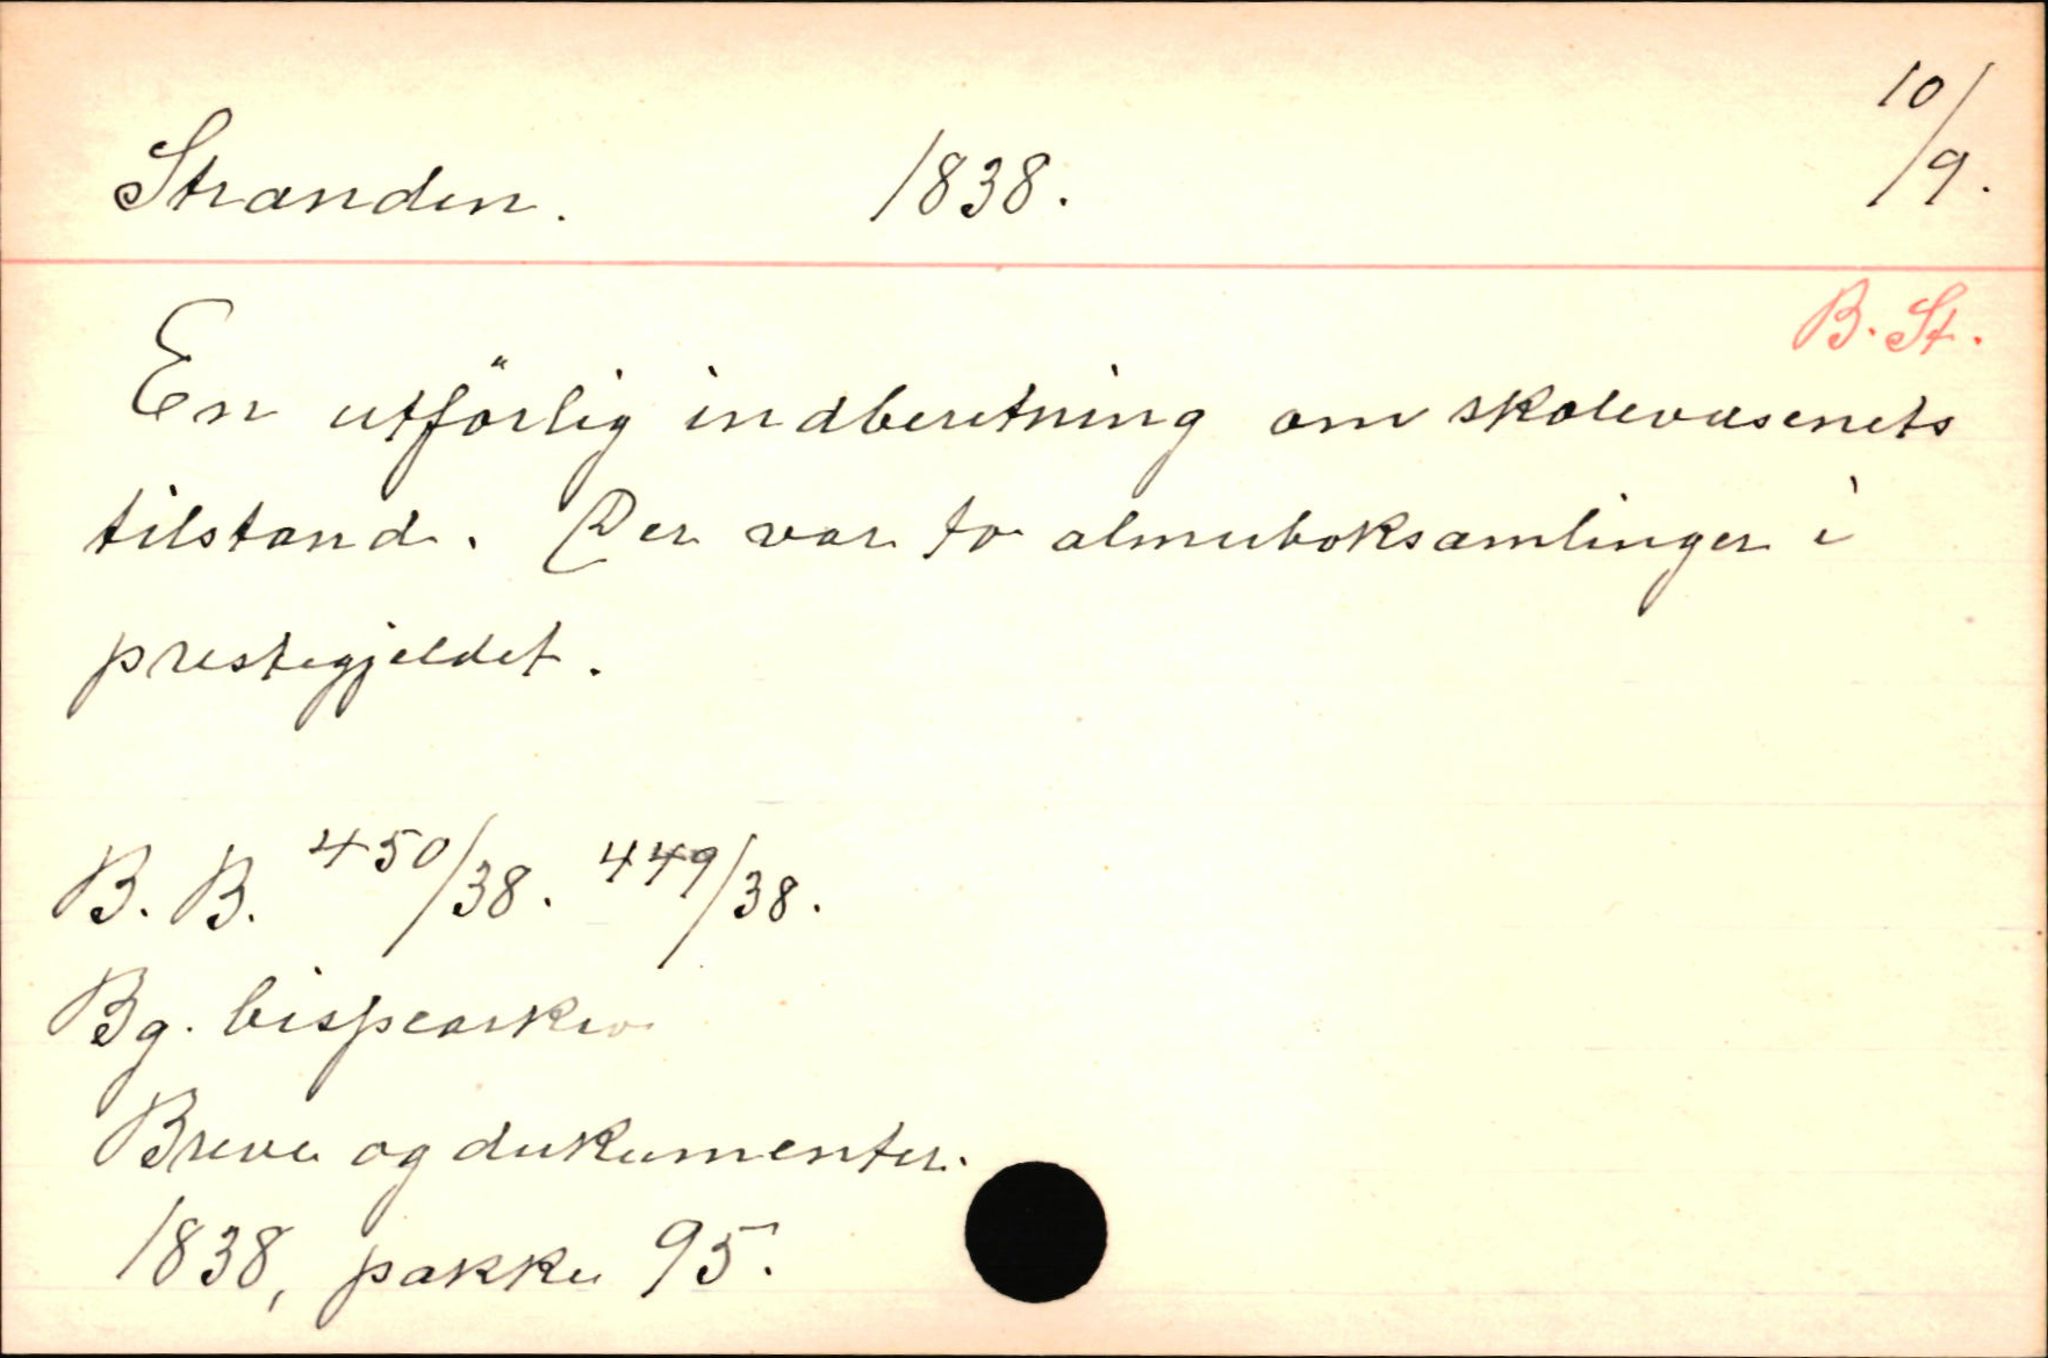 Stranden. 1838. 10/9.
B. St.
En utförlig indberetning om skolevæsenets
tilstand. Der var to almuboksamlinger i
prestegjeldet.
B. B. 450/38. 449/38.
Bg. bispearkiv
Breve og dokumenter.
1838, pakke 95.